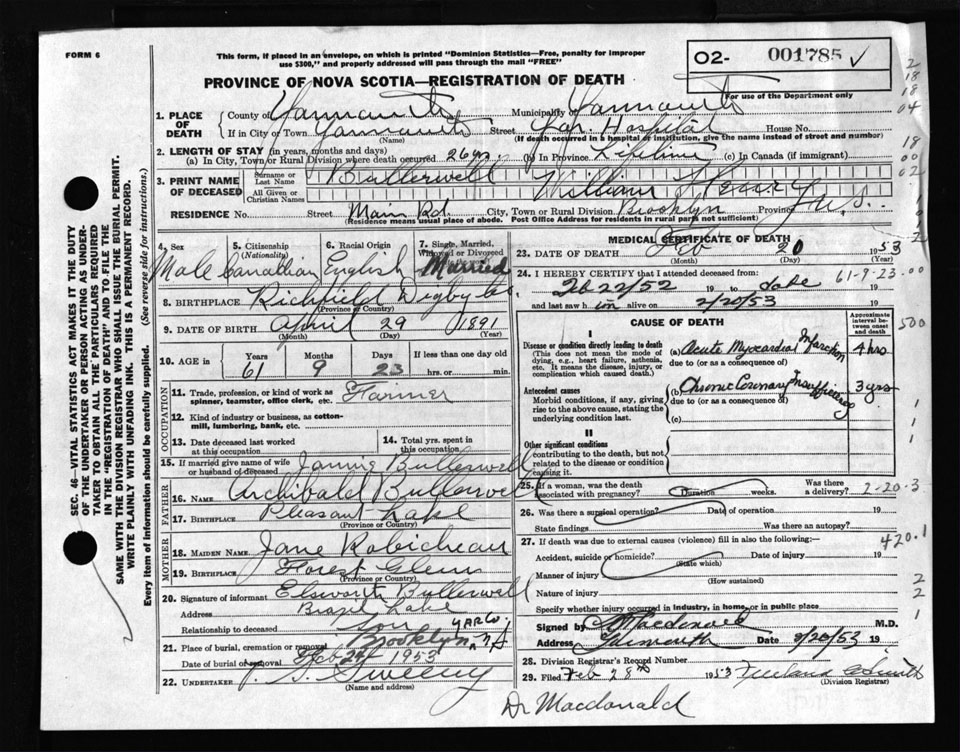 FORM 6
This form, if placed in an envelope, on which is printed "Dominion Statistics—Free, penalty for improper
use $300," and properly addressed will pass through the mail "FREE"
PROVINCE OF NOVA SCOTIA—REGISTRATION OF DEATH
02- 001785 ✓
For use of the Department only
1. PLACE OF DEATH
County of Yarmouth Municipality of Yarmouth
If in City or Town Yarmouth Street Hospital House No.
(Name) (If death occurred in a hospital or institution, give the name instead of street and number)
2. LENGTH OF STAY (in years, months and days)
(a) In City, Town or Rural Division where death occurred 26 yrs. (b) In Province Lifetime (c) In Canada (if immigrant)
3. PRINT NAME OF DECEASED
Surname or Last Name Bullerwell
All Given or Christian Names William
RESIDENCE No. Street Main Rd. City, Town or Rural Division Brooklyn Province N.S.
(Residence means usual place of abode. Post Office Address for Residents in rural parts not sufficient)
4. Sex 5. Citizenship (Nationality) 6. Racial Origin 7. Single, Married, Widowed or Divorced
Male Canadian English Married
8. BIRTHPLACE Richfield Digby Co
(Province or Country)
9. DATE OF BIRTH April 29 1891
(Month) (Day) (Year)
10. AGE in Years Months Days If less than one day old
61 9 23 hrs. or min.
OCCUPATION
11. Trade, profession, or kind of work as spinner, teamster, office clerk, etc. Farmer
12. Kind of industry or business, as cotton-mill, lumbering, bank, etc.
13. Date deceased last worked at this occupation
14. Total yrs. spent in this occupation
15. If married give name of wife or husband of deceased Bullerwell
FATHER
16. NAME Archibald Bullerwell
17. BIRTHPLACE Pleasant Lake
(Province or Country)
MOTHER
18. MAIDEN NAME Jane Robicheau
19. BIRTHPLACE Forest Glenn
(Province or Country)
20. Signature of informant Elsworth Bullerwell
Address Brazil Lake
Relationship to deceased Son
21. Place of burial, cremation or removal Brooklyn, Yar Co. N.S.
Date of burial or removal Feb 24 1953
22. UNDERTAKER Sweeny
(Name and address)
MEDICAL CERTIFICATE OF DEATH
23. DATE OF DEATH Feb 20 1953
(Month) (Day)
24. I HEREBY CERTIFY that I attended deceased from: 61-9-23-00
22/52 19 to date 19
and last saw him alive on 2/20/53 19
CAUSE OF DEATH
Approximate interval between onset and death
I
Disease or condition directly leading to death
(This does not mean the mode of dying, e.g., heart failure, asthenia, etc. It means the disease, injury, or complication which caused death.)
(a) Acute Myocardial Infarction 4 hrs
due to (or as a consequence of)
Antecedent causes
Morbid conditions, if any, giving rise to the above cause, stating the underlying condition last.
(b) Chronic Coronary Insufficiency 3 yrs
due to (or as a consequence of)
(c)
II
Other significant conditions
contributing to the death, but not related to the disease or condition causing it.
25. If a woman, was the death associated with pregnancy? Duration weeks. Was there a delivery? 2-20-3
26. Was there a surgical operation? Date of operation 19
State findings Was there an autopsy?
27. If death was due to external causes (violence) fill in also the following: 420.1
Accident, suicide or homicide? Date of injury 19
(State which)
Manner of injury
(How sustained)
Nature of injury
Specify whether injury occurred in industry, in home, or in public place
Signed by Macdonald M.D.
Address Yarmouth Date 2/20/53 19
28. Division Registrar's Record Number
29. Filed Feb 28th 1953
(Division Registrar)
Dr Macdonald
SEC. 46—VITAL STATISTICS ACT MAKES IT THE DUTY
OF THE UNDERTAKER OR PERSON ACTING AS UNDER-
TAKER TO OBTAIN ALL THE PARTICULARS REQUIRED
IN THE "REGISTRATION OF DEATH" AND TO FILE THE
SAME WITH THE DIVISION REGISTRAR WHO SHALL ISSUE THE BURIAL PERMIT.
WRITE PLAINLY WITH UNFADING INK. THIS IS A PERMANENT RECORD.
Every item of information should be carefully supplied. (See reverse side for instructions.)